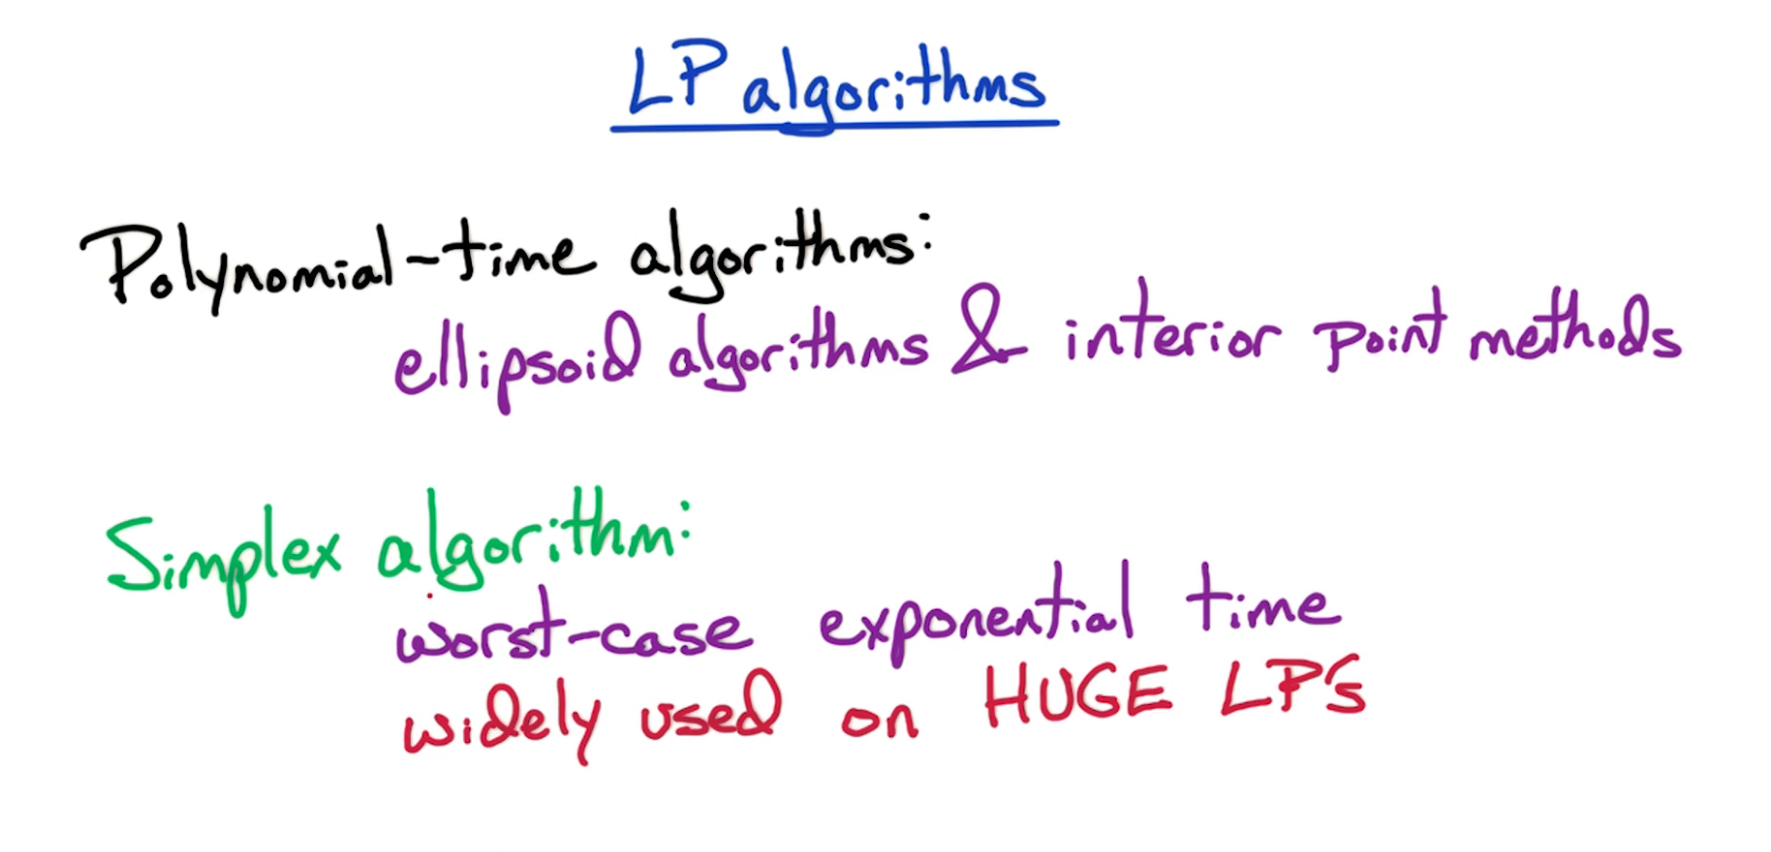 LP algorithms
Polynomial-time algorithms:
ellipsoid algorithms & interior point methods
Simplex algorithm:
worst-case exponential time
widely used on HUGE LP's